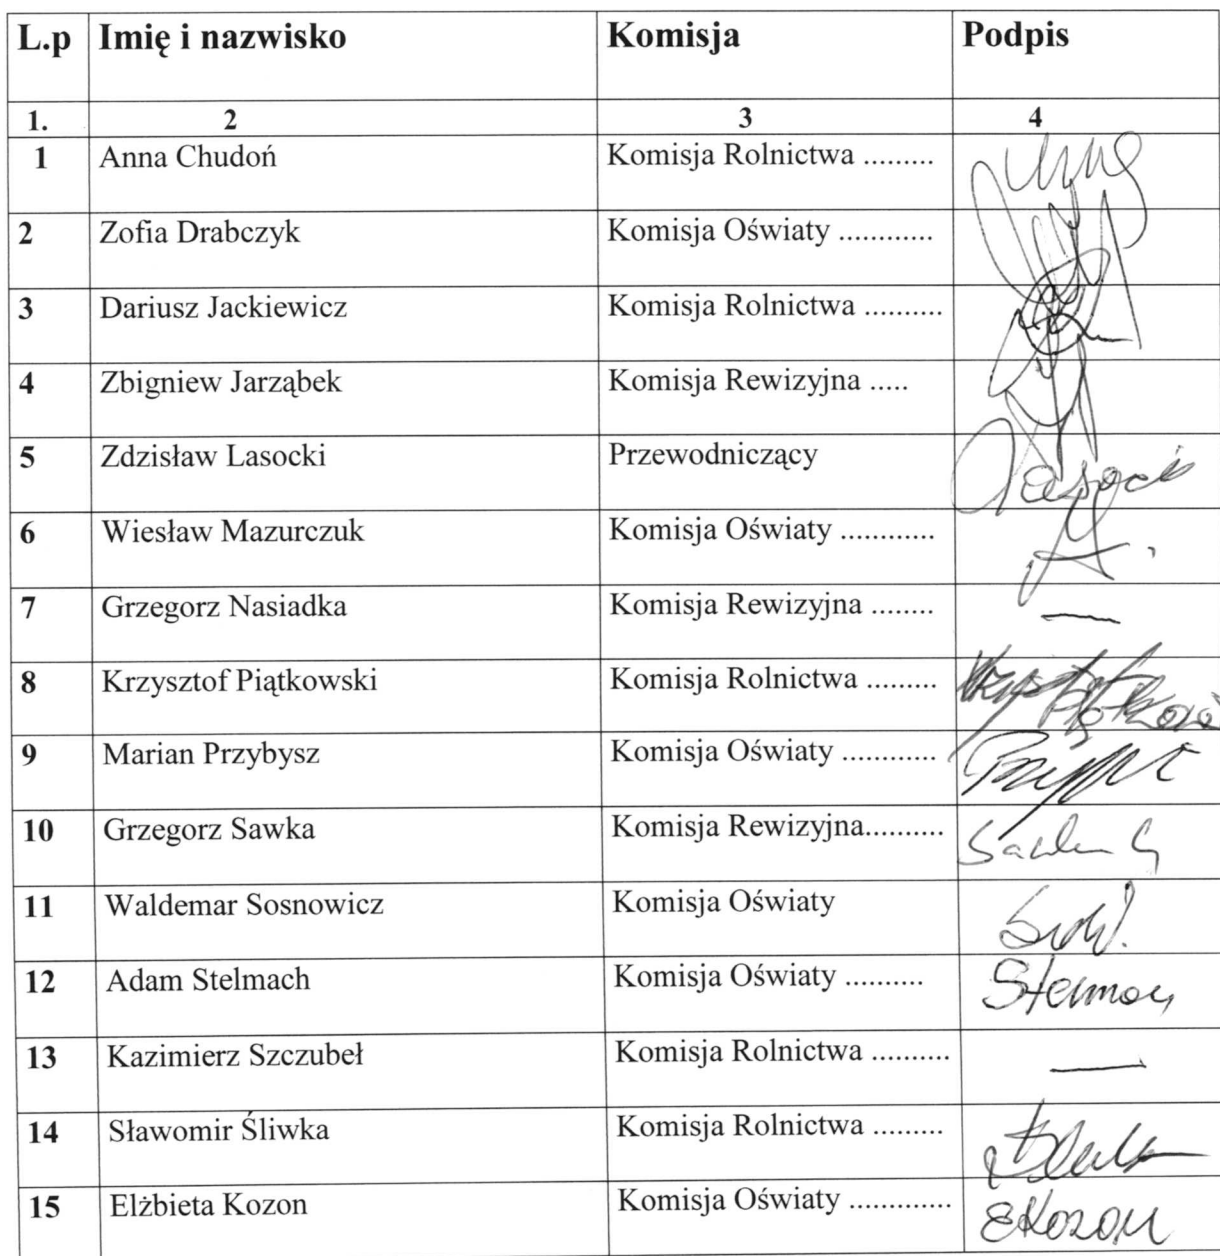 L.p Imię i nazwisko Komisja Podpis
1. 2 3 4
1 Anna Chudoń Komisja Rolnictwa .........
2 Zofia Drabczyk Komisja Oświaty ............
3 Dariusz Jackiewicz Komisja Rolnictwa ..........
4 Zbigniew Jarząbek Komisja Rewizyjna .....
5 Zdzisław Lasocki Przewodniczący
6 Wiesław Mazurczuk Komisja Oświaty ............
7 Grzegorz Nasiadka Komisja Rewizyjna ........ —
8 Krzysztof Piątkowski Komisja Rolnictwa .........
9 Marian Przybysz Komisja Oświaty ............
10 Grzegorz Sawka Komisja Rewizyjna..........
11 Waldemar Sosnowicz Komisja Oświaty
12 Adam Stelmach Komisja Oświaty ..........
13 Kazimierz Szczubeł Komisja Rolnictwa .......... —
14 Sławomir Śliwka Komisja Rolnictwa .........
15 Elżbieta Kozon Komisja Oświaty ............. EKozon